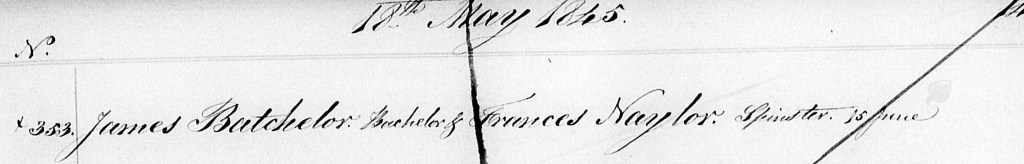 18th May 1845.
No.
+ 353. James Batchelor. Bachelor & Frances Naylor. Spinster. 15 June